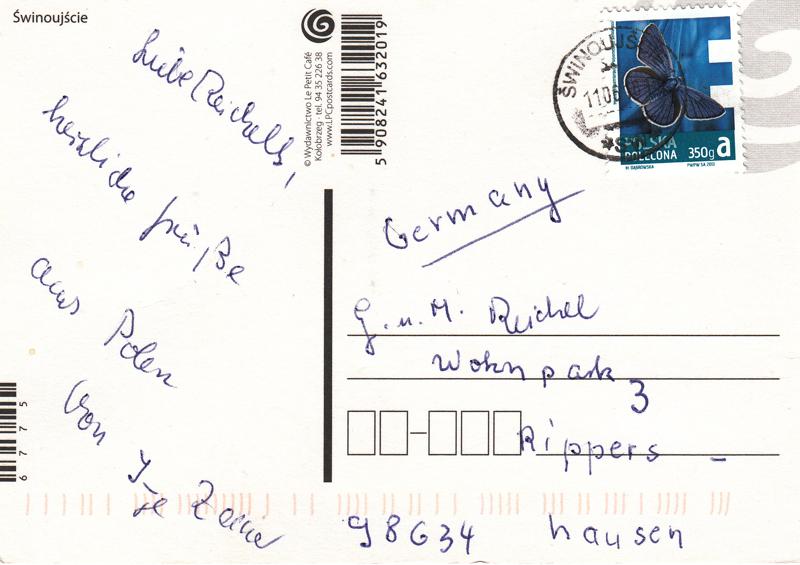 Świnoujście
Liebe Reichels,
herzliche Grüße
aus Polen
von
© Wydawnictwo Le Petit Café
Kołobrzeg · tel. 94 35 226 38
www.LPCpostcards.com
5 908241 632019
6775
ŚWINOUJŚ
1106
POLSKA
POLECONA 350g a
H. DĄBROWSKA PWPW SA 2013
Germany
G. u. M. Reichel
Wohnpark
3
Rippers-
98634 hausen